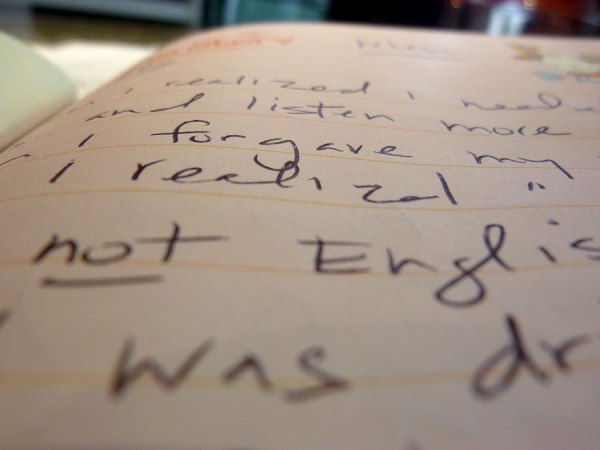 i realized i need
and listen more
i forgave my
i realized "
not Englis
was dr